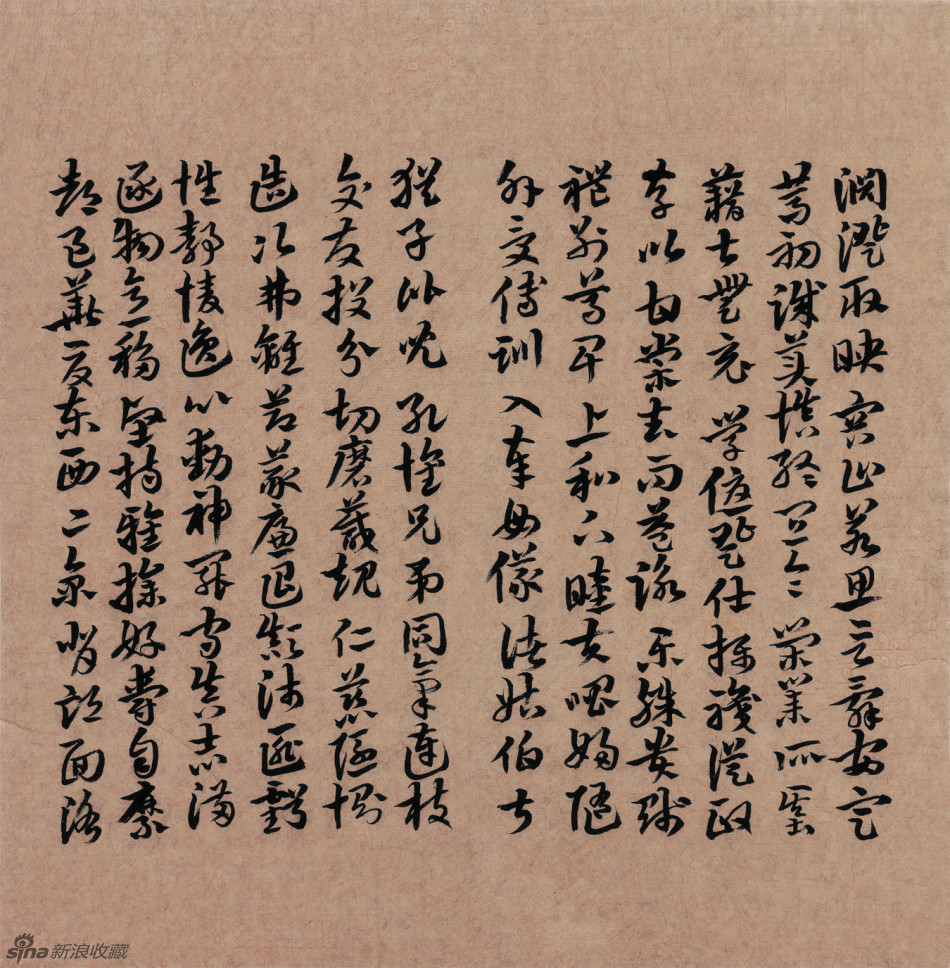 淵澄取映容止若思言辭安定
篤初誠美慎終宜令榮業所基
藉甚無竟學優登仕攝職從政
存以甘棠去而益詠樂殊貴賤
禮別尊卑上和下睦夫唱婦隨
外受傅訓入奉母儀諸姑伯叔
猶子比兒孔懷兄弟同氣連枝
交友投分切磨箴規仁慈隱惻
造次弗離節義廉退顛沛匪虧
性靜情逸心動神疲守真志滿
逐物意移堅持雅操好爵自縻
都邑華夏東西二京背邙面洛
sina新浪收藏